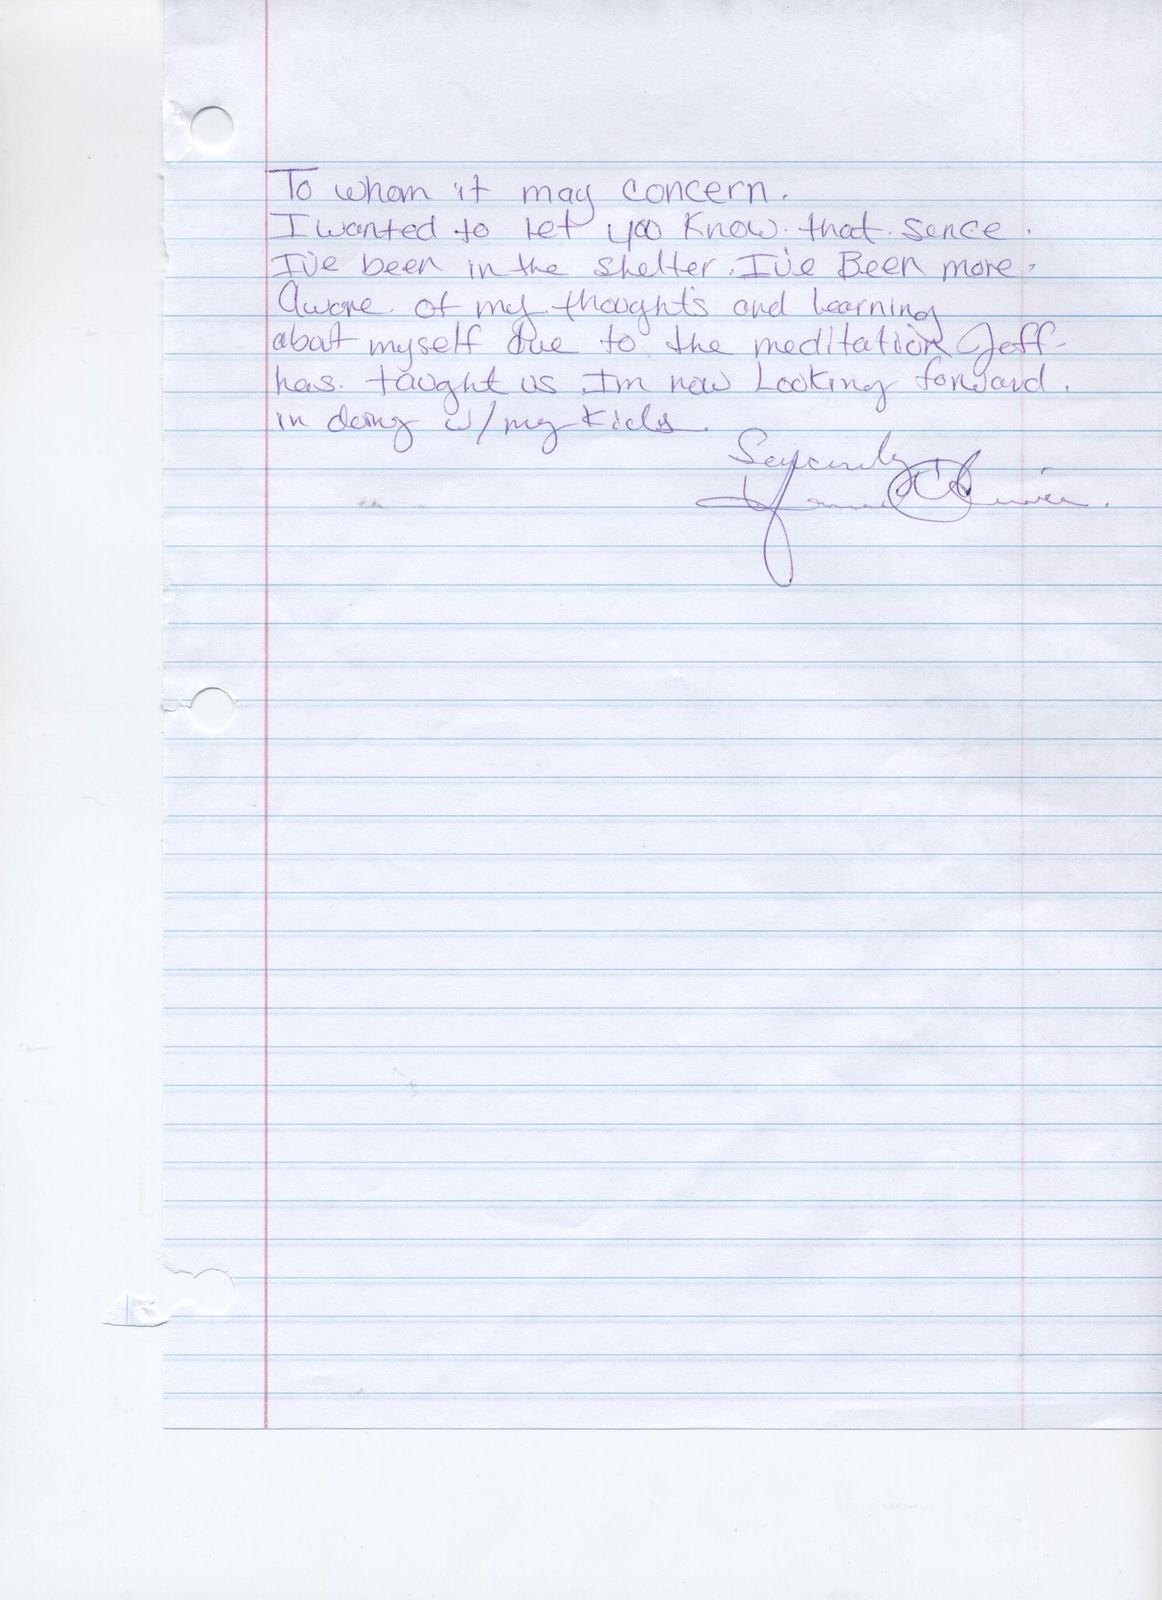 To whom it may concern.
I wanted to let you know. that. sence.
I've been in the shelter. I've Been more.
Aware. of my thoughts and learning
abat myself due to the meditation Jeff
has. taught us. I'm now Looking forward.
in doing w/my kids.